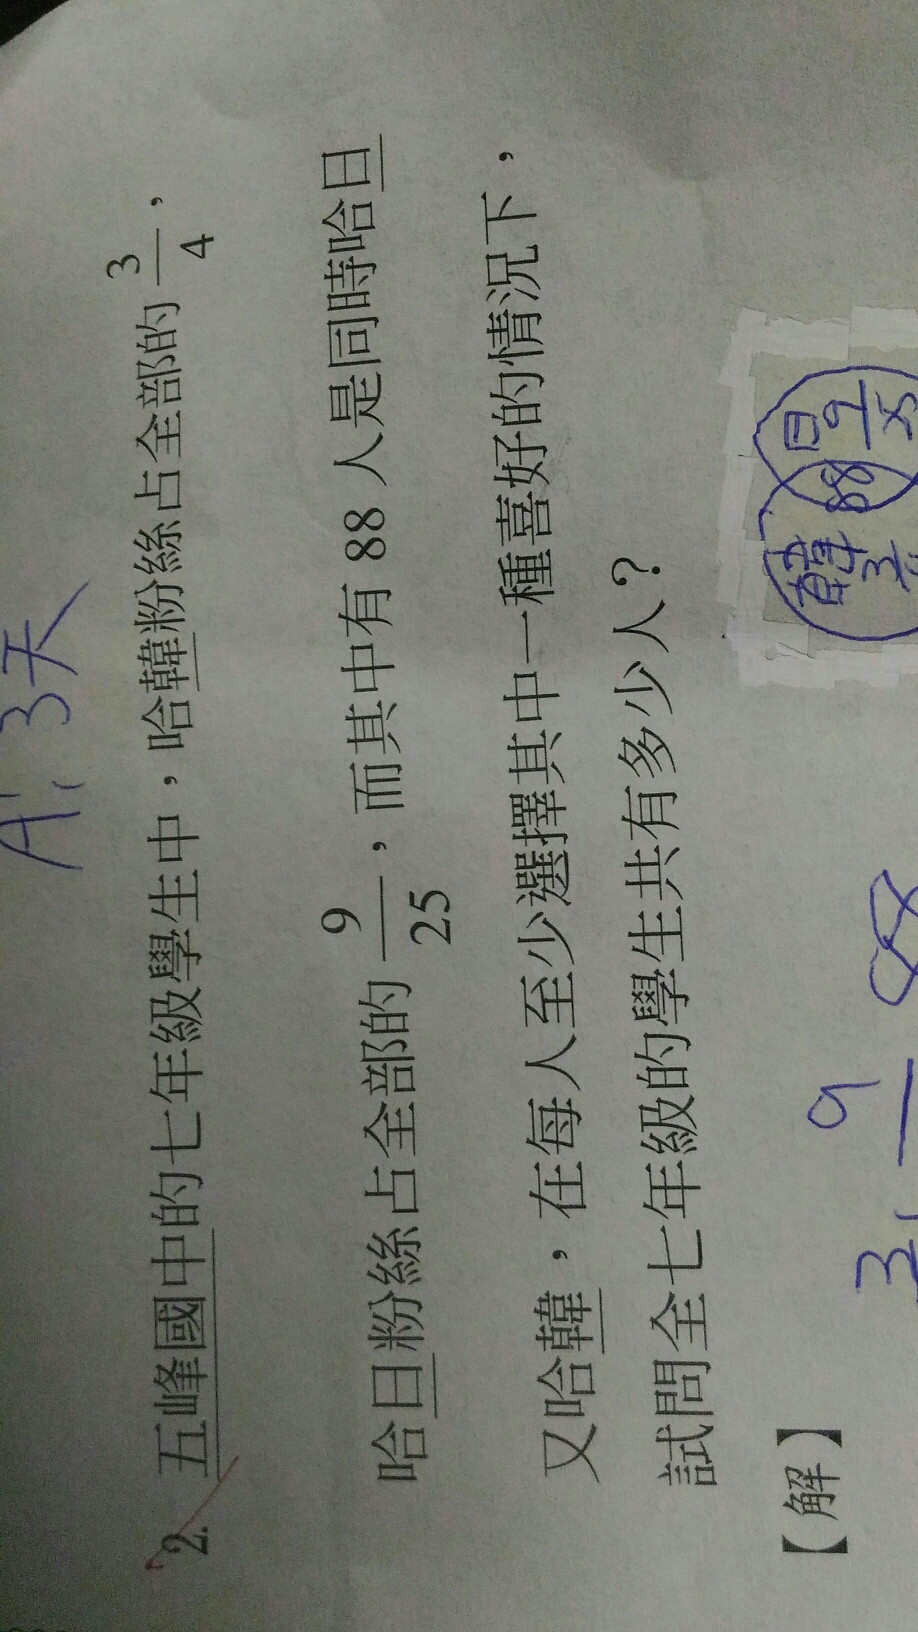 A: 3天
2. 五峰國中的七年級學生中，哈韓粉絲占全部的 3/4，
哈日粉絲占全部的 9/25，而其中有 88 人是同時哈日
又哈韓，在每人至少選擇其中一種喜好的情況下，
試問全七年級的學生共有多少人？
【解】
韓 88 日
9/25